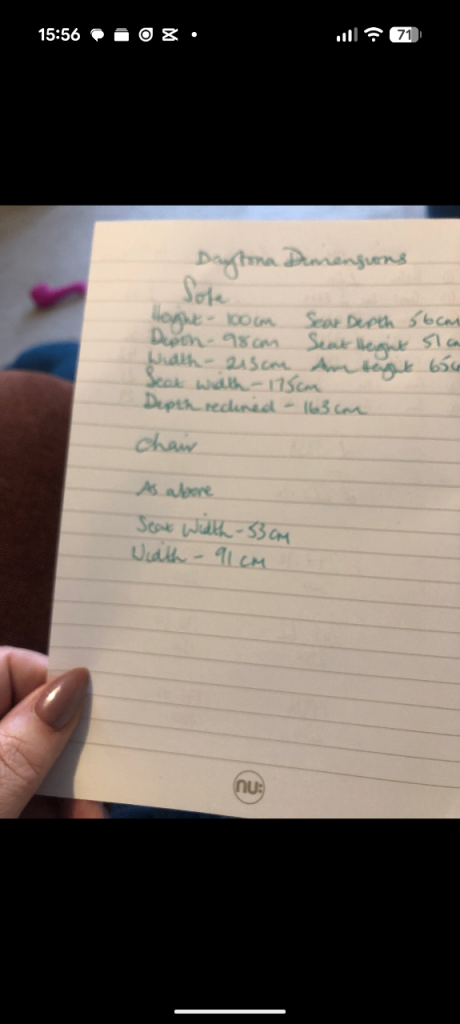 15:56
71
Daytona Dimensions
Sofa
Height - 100cm Seat Depth 56cm
Depth - 98cm Seat Height 51cm
Width - 213cm Arm Height 65c
Seat width - 175cm
Depth reclined - 163cm
Chair
As above
Seat Width - 53cm
Width - 91cm
nu: